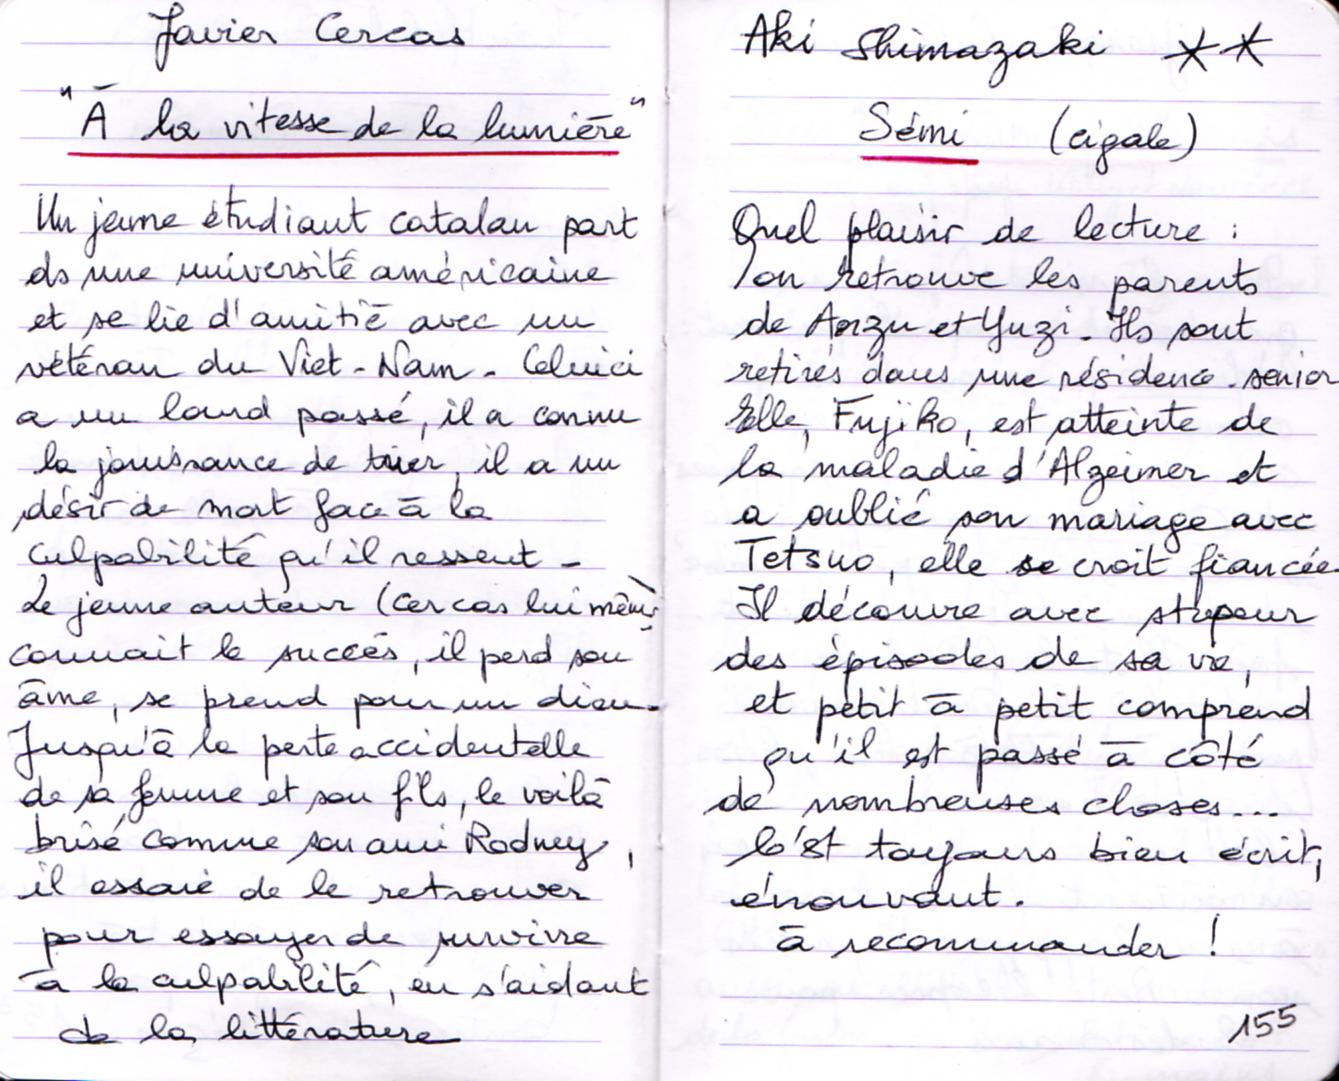 Javier Cercas
"À la vitesse de la lumière"
Un jeune étudiant catalan part
ds une université américaine
et se lie d'amitié avec un
vétéran du Viet-Nam. Celui ci
a un lourd passé, il a connu
la jouissance de tuer, il a un
désir de mort face à la
culpabilité qu'il ressent -
Le jeune auteur (Cercas lui même)
connait le succès, il perd son
âme, se prend pour un dieu.
Jusqu'à la perte accidentelle
de sa femme et son fils, le voilà
brisé comme son ami Rodney,
il essaie de le retrouver
pour essayer de survivre
à la culpabilité, en s'aidant
de la littérature
Aki Shimazaki **
Sémi (cigale)
Quel plaisir de lecture :
l'on retrouve les parents
de Anzu et Yuzi. Ils sont
retirés dans une résidence senior
Elle, Fujiko, est atteinte de
la maladie d'Alzeimer et
a oublié son mariage avec
Tetsuo, elle se croit fiancée
Il découvre avec stupeur
des épisodes de sa vie,
et petit à petit comprend
qu'il est passé à côté
de nombreuses choses...
C'est toujours bien écrit,
émouvant.
à recommander !
155